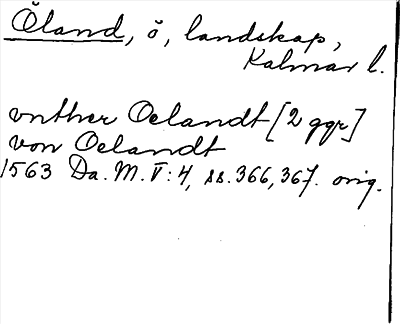 Öland, ö, landskap,
Kalmar l.
vnther Oelandt [2 ggr]
von Oelandt
1563 Da. M. V:4, ss. 366, 367. orig.